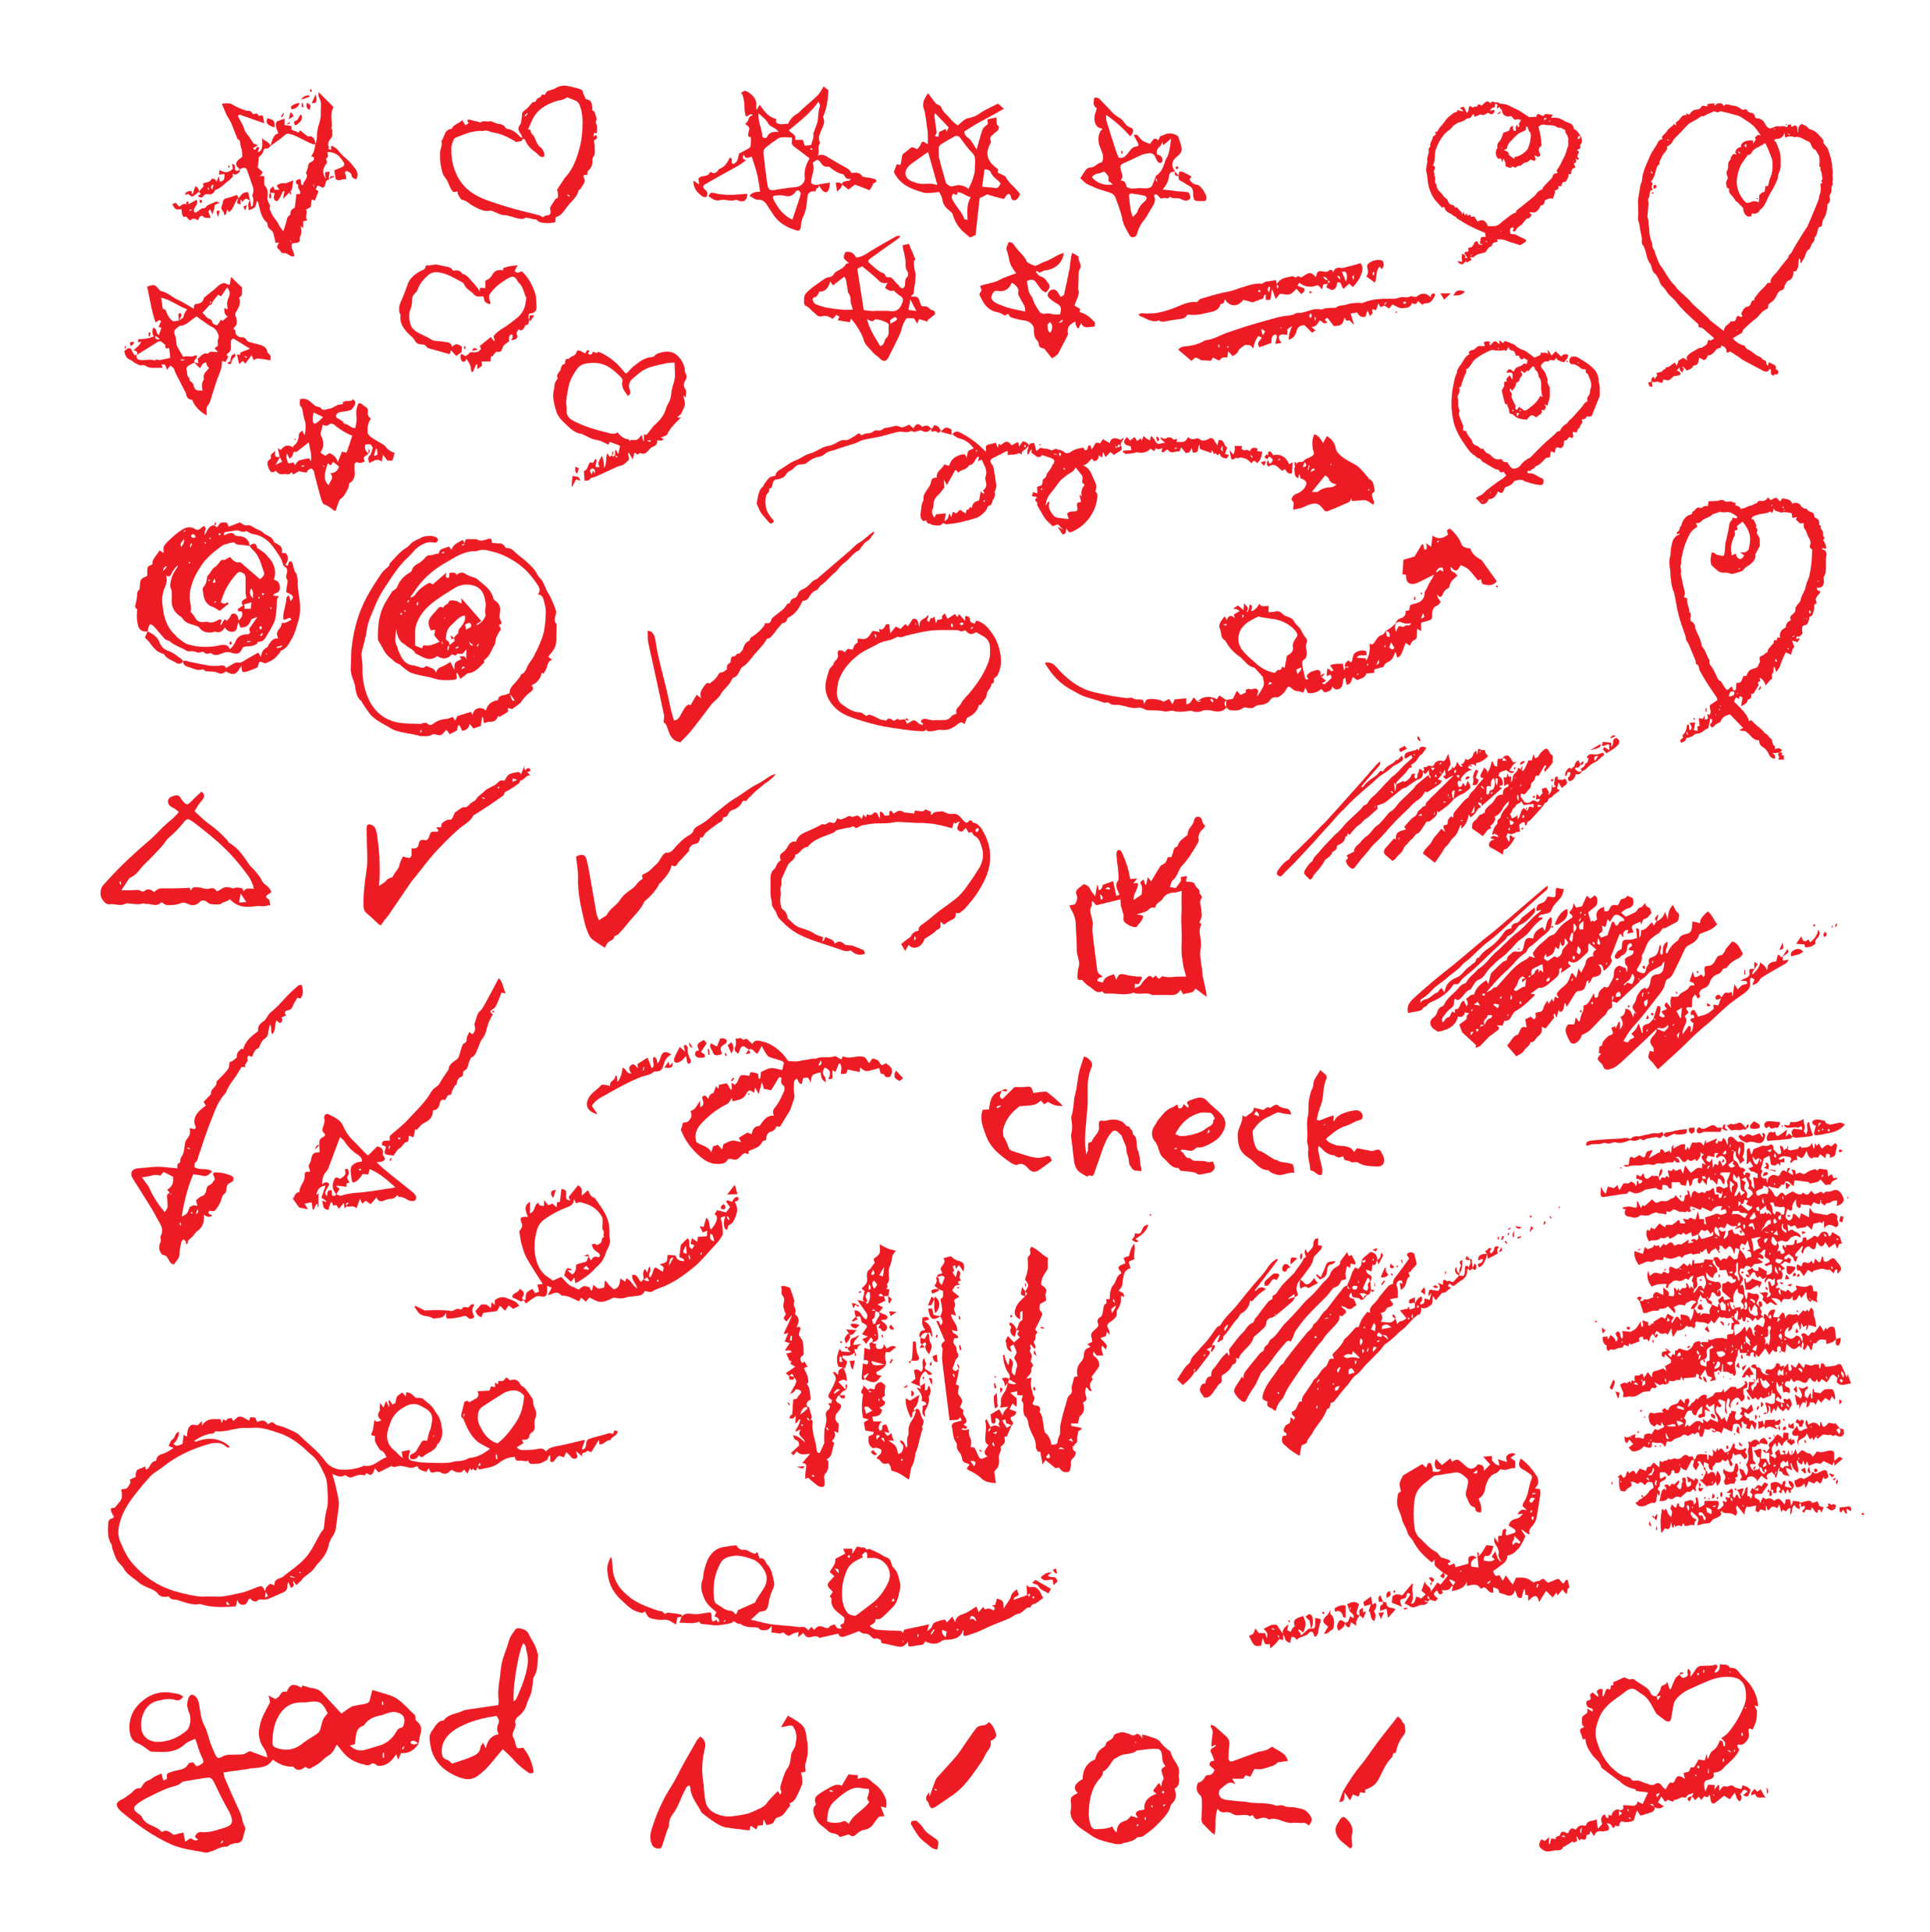 check
good
No! OK!